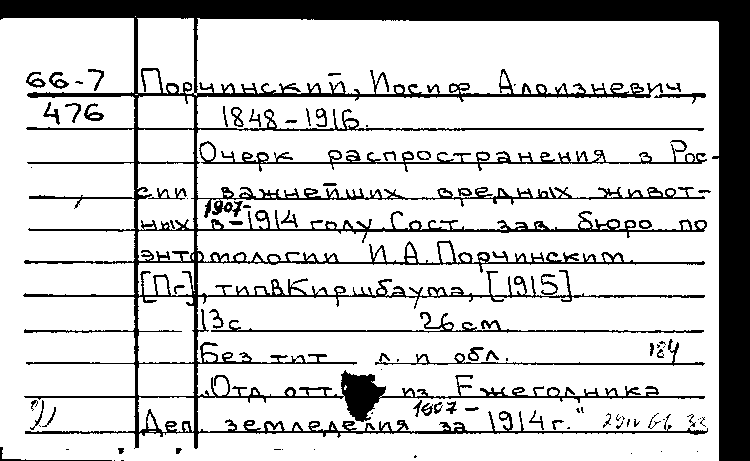 66-7 Порчинский, Иосиф Алоизиевич,
476 1848-1916.
Очерк распространения в Рос-
сии важнейших вредных живот-
1907-
ных в 1914 году. Сост. зав. бюро по
энтомологии И.А. Порчинским.
[Пг], тип.В.Киршбаума, [1915]
13с. 26см.
Без тит л. и обл. 184
"Отд. отт. из Ежегодника
1907-
Деп. земледелия за 1914г."